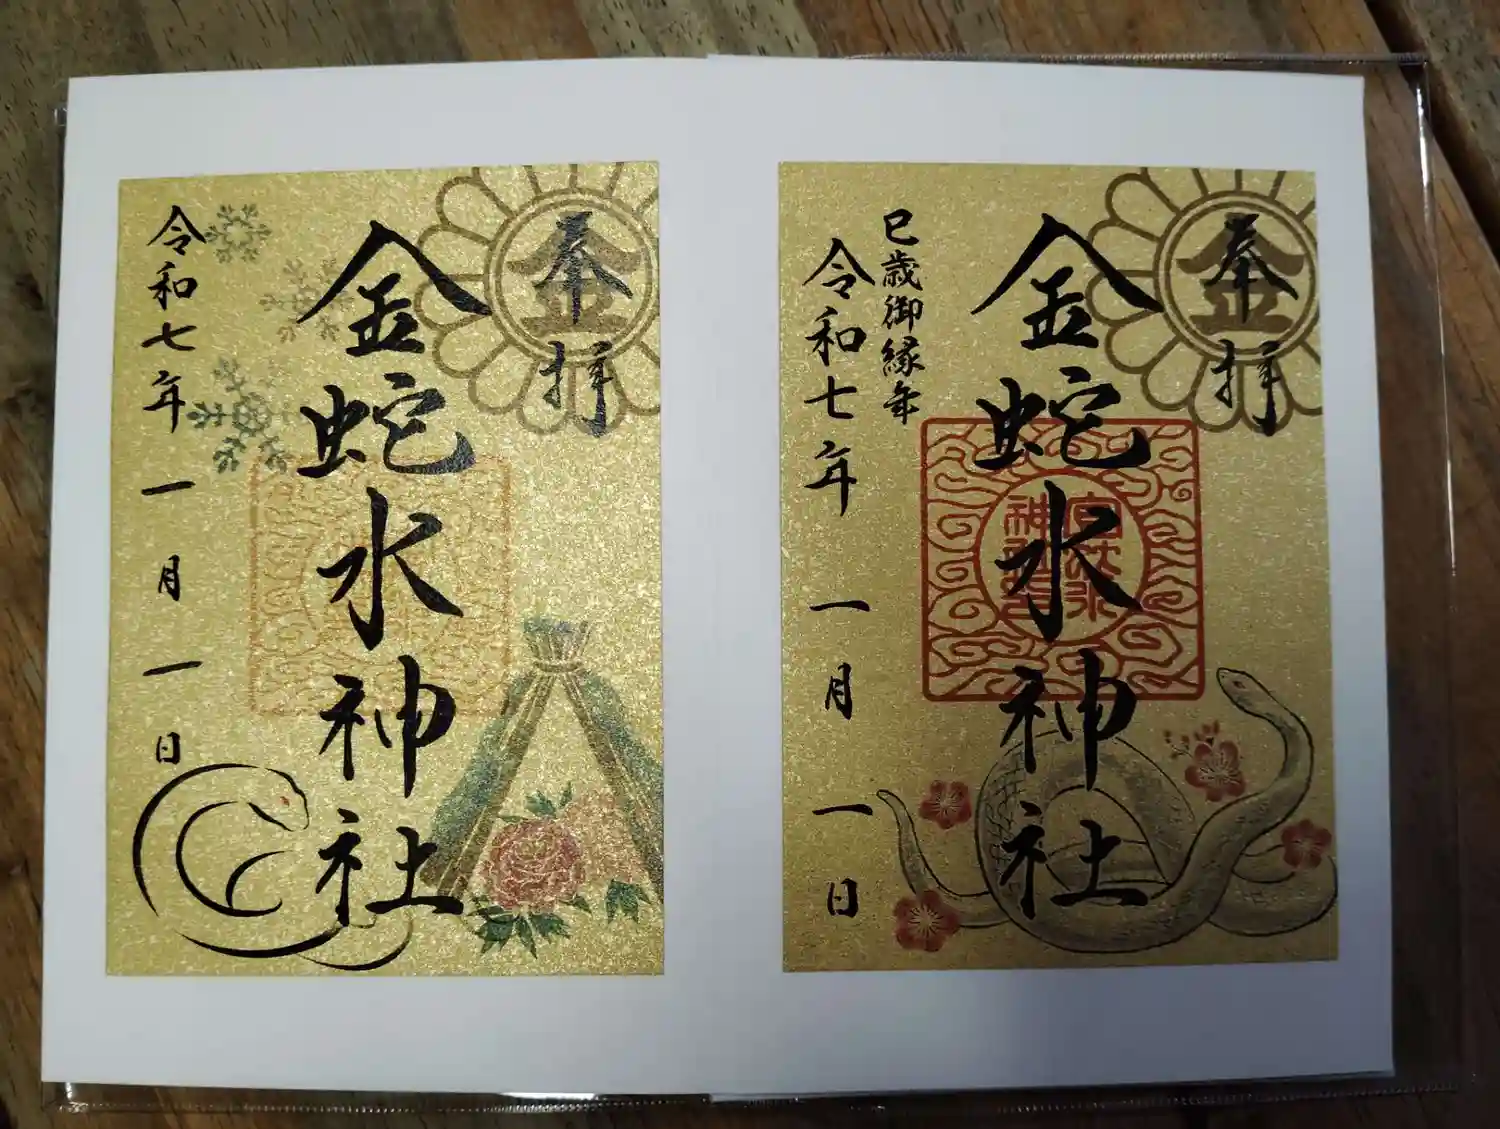 奉拝
金蛇水神社
令和七年一月一日
金
奉拝
金蛇水神社
巳歳御縁年
令和七年一月一日
金